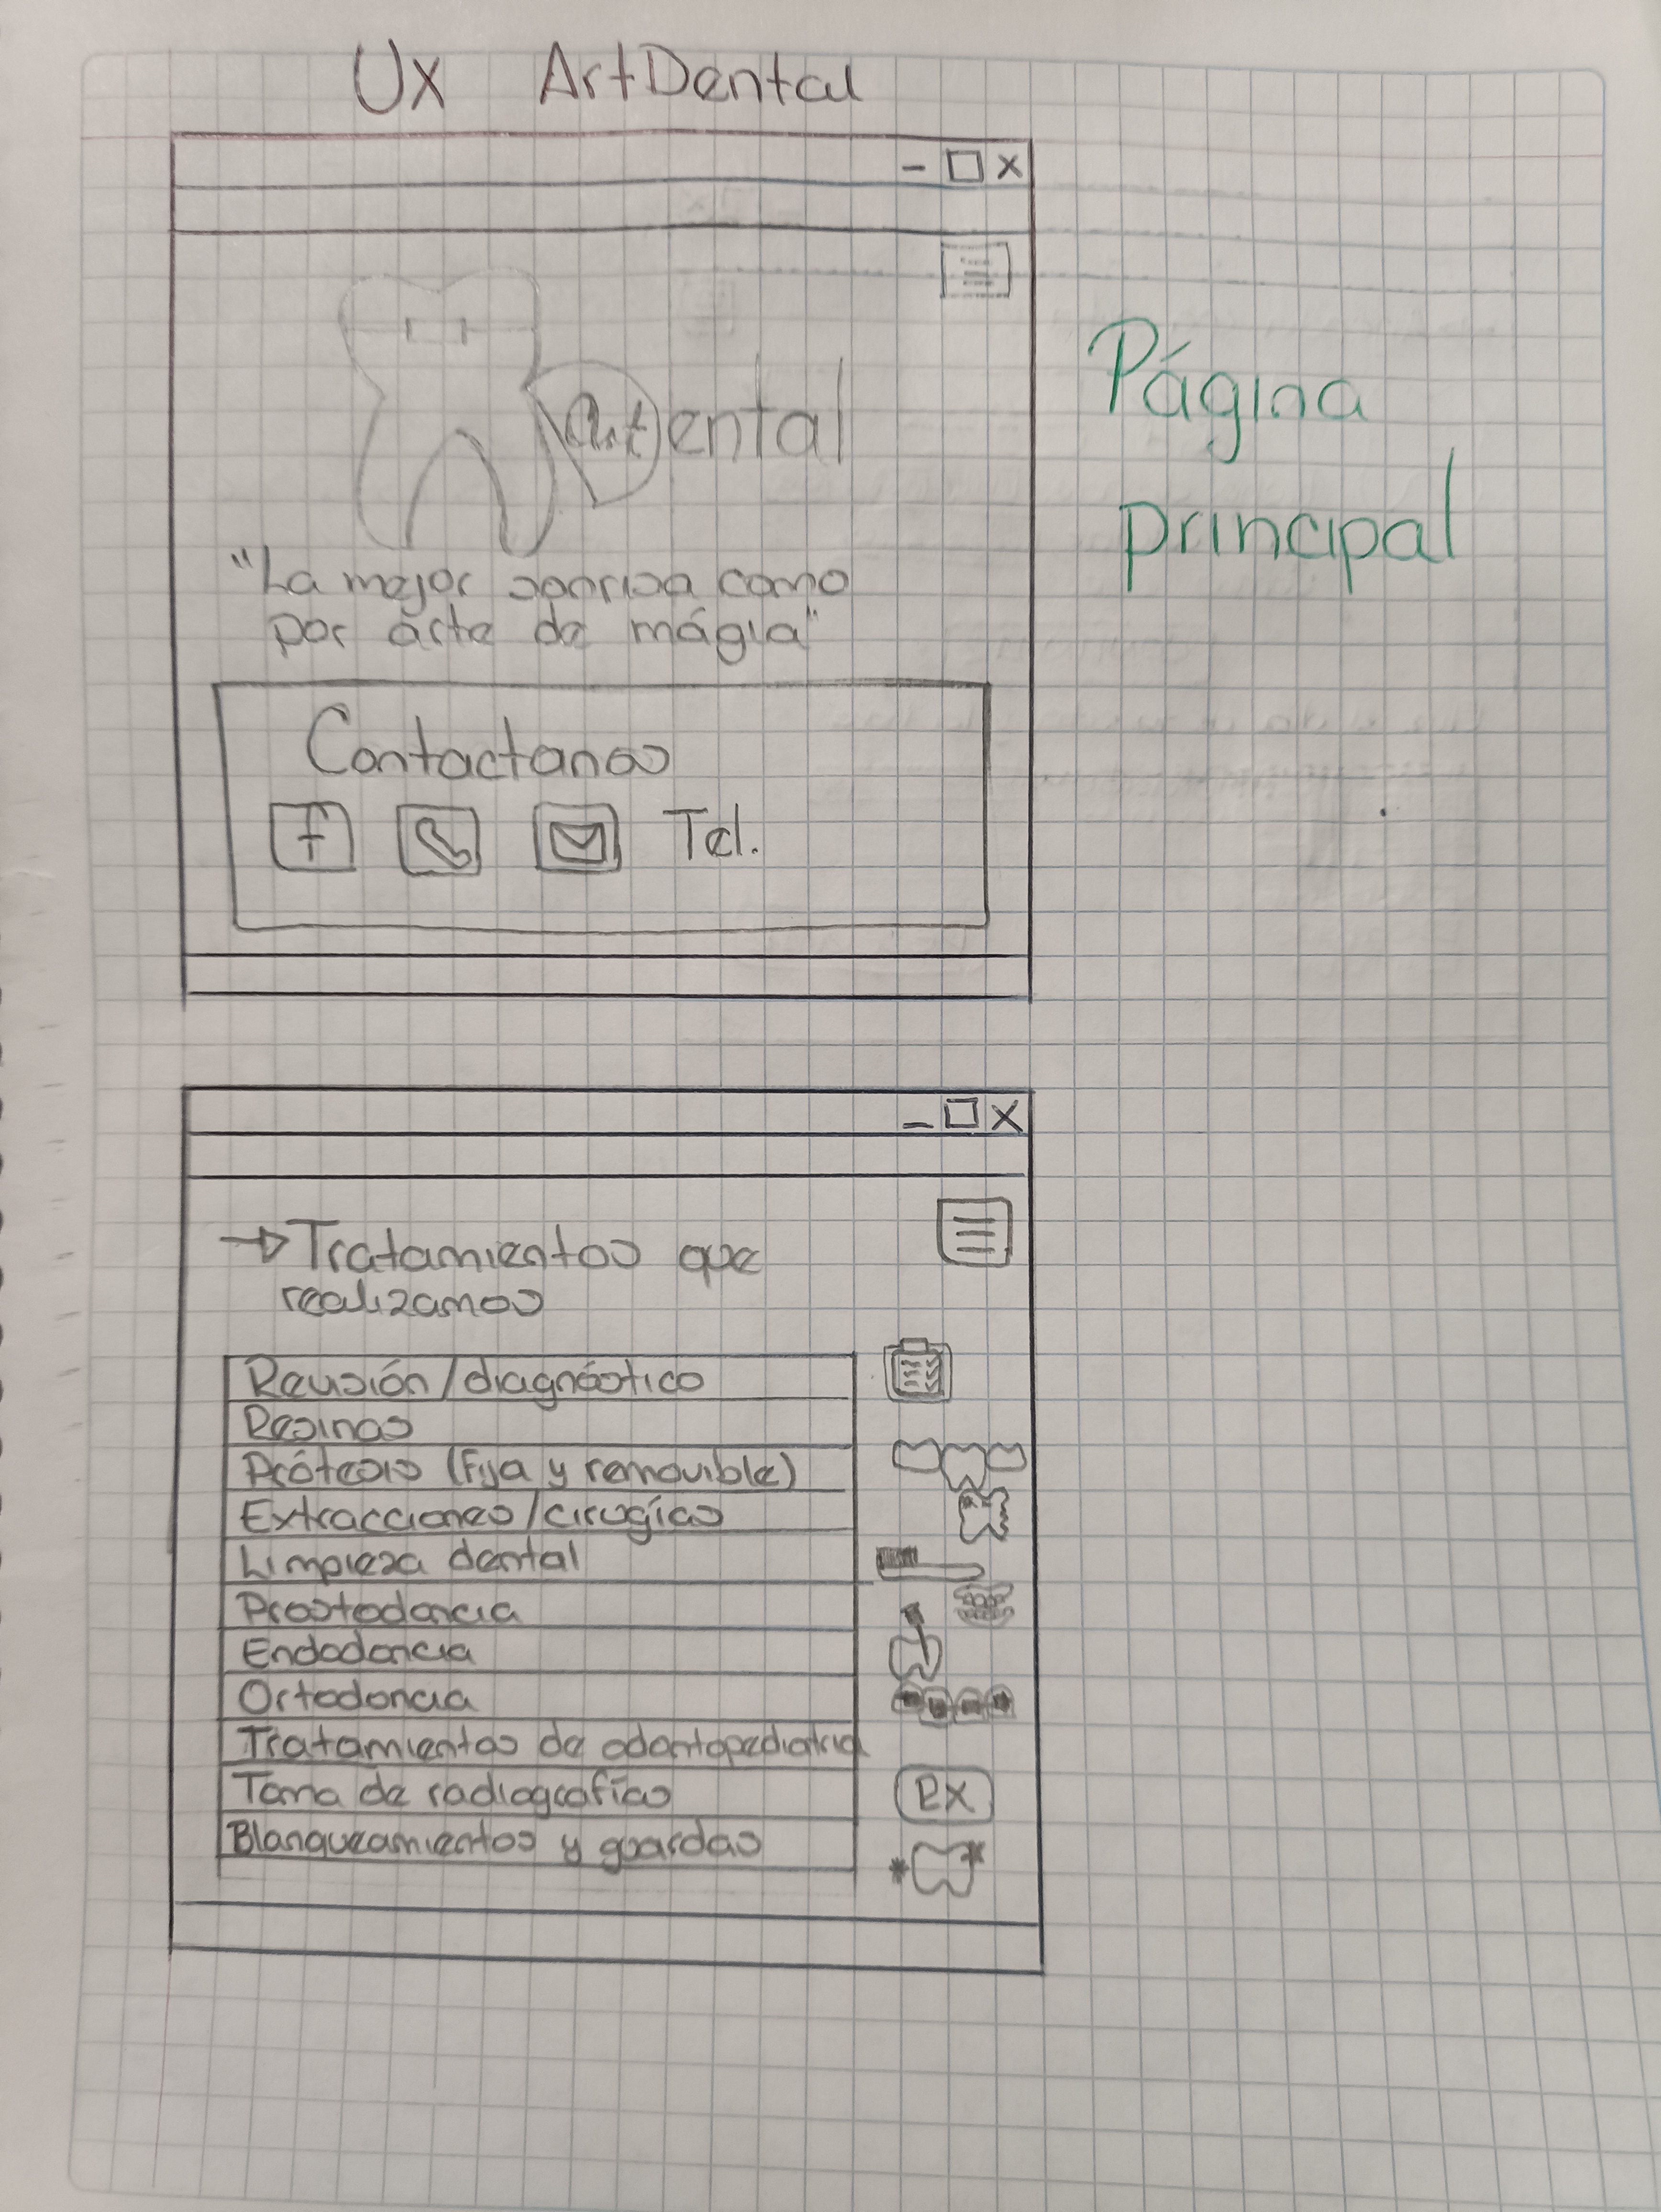 Ux ArtDental
- □ X
Art ental
Página
principal
"La mejor sonrisa como
por árte de mágia"
Contactanos
f Tel.
- □ X
→ Tratamientos que
realizamos
Revisión/diagnóstico
Resinas
Prótesis (Fija y removible)
Extracciones/cirugías
Limpieza dental
Prostodoncia
Endodoncia
Ortodoncia
Tratamientos de odontopediatria
Toma de radiografías
RX
Blanqueamientos y guardas